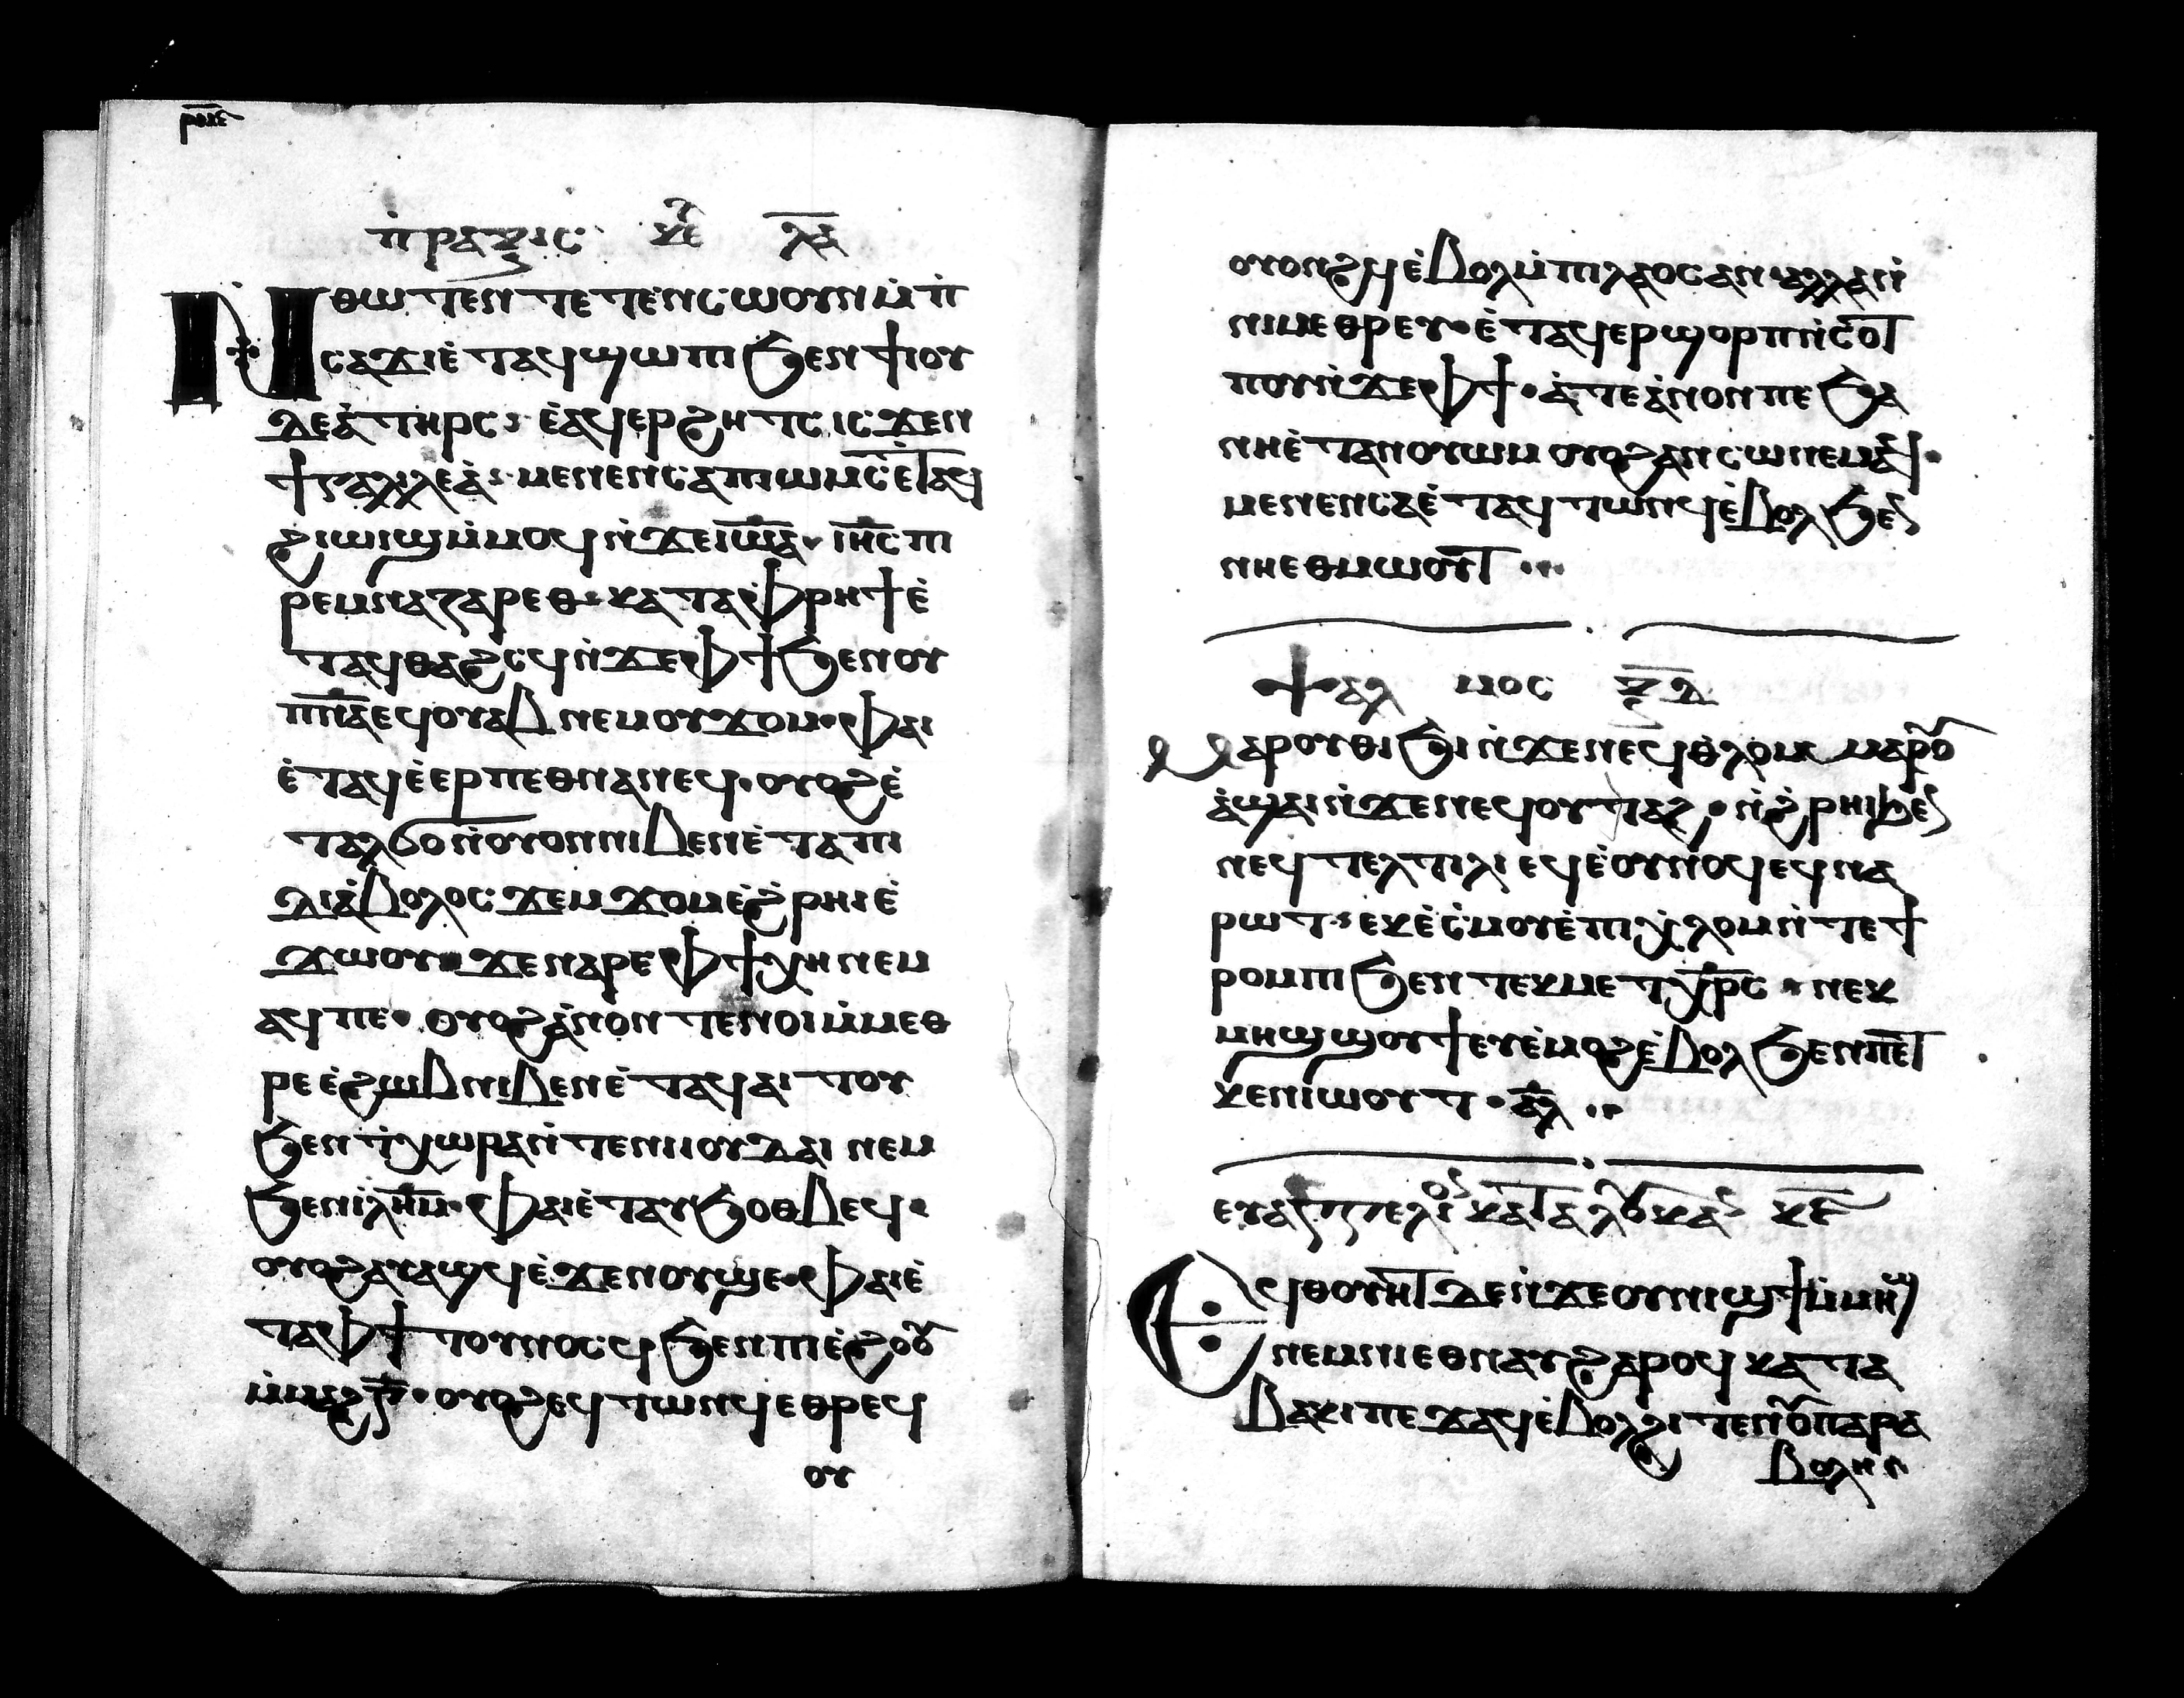 ⲡ̀ⲣⲁⲝⲓⲥ ⲕ̅ⲉ̅ ⲗ̅ⲁ̅
Ⲛⲑⲱⲧⲉⲛ ⲧⲉⲧⲉⲛⲥⲱⲟⲩⲛ ⲙ̀ⲡ̀
ⲥⲁϫⲓ ⲉ̀ⲧⲁϥϣⲱⲡⲓ ϧⲉⲛ ϯⲓⲟⲩ
ⲇⲉⲁ̀ ⲧⲏⲣⲥ ⲉ̀ⲁϥⲉⲣϩⲏⲧⲥ ⲓⲥϫⲉⲛ
ϯⲅⲁⲗⲓⲗⲉⲁ̀ ⲙⲉⲛⲉⲛⲥⲁ ⲡⲓⲱⲙⲥ ⲉ̀ⲧⲁϥ
ϩⲓⲱⲓϣ ⲙ̀ⲙⲟϥ ⲛ̀ϫⲉ ⲓⲱ̅ⲁ̅ ⲓⲏ̅ⲥ̅ ⲡⲓ
ⲣⲉⲙⲛⲁⲍⲁⲣⲉⲑ ⲕⲁⲧⲁ ⲫⲣⲏϯ ⲉ̀
ⲧⲁϥⲑⲁϩⲥϥ ⲛ̀ϫⲉ ⲫϯ ϧⲉⲛ ⲟⲩ
ⲡ̅ⲛ̅ⲁ̅ ⲉϥⲟⲩⲁⲃ ⲛⲉⲙ ⲟⲩϫⲟⲙ ⲫⲁⲓ
ⲉ̀ⲧⲁϥⲉ̀ⲉⲣⲡⲉⲑⲛⲁⲛⲉϥ ⲟⲩⲟϩ ⲉ̀
ⲧⲁⲗϭⲟ ⲛ̀ⲟⲩⲟⲛ ⲛⲓⲃⲉⲛ ⲉ̀ⲧⲁ ⲡⲓ
ⲇⲓⲁ̀ⲃⲟⲗⲟⲥ ϫⲉⲙϫⲟⲙ ⲉ̀ϩ̀ⲣⲏⲓ ⲉ̀
ϫⲱⲟⲩ ϫⲉ ⲛⲁⲣⲉ ⲫϯ ⲭⲏ ⲛⲉⲙ
ⲁϥ ⲡⲉ ⲟⲩⲟϩ ⲁ̀ⲛⲟⲛ ⲧⲉⲛⲟⲓ ⲙ̀ⲙⲉⲑ
ⲣⲉ ⲉ̀ϩⲱⲃ ⲛⲓⲃⲉⲛ ⲉ̀ⲧⲁϥⲁⲓⲧⲟⲩ
ϧⲉⲛ ⲧ̀ⲭⲱⲣⲁ ⲛ̀ⲧⲉ ⲛⲓⲓⲟⲩⲇⲁⲓ ⲛⲉⲙ
ϧⲉⲛ ⲓ̀ⲗ̅ⲏ̅ⲙ̅ ⲫⲁⲓ ⲉ̀ⲧⲁⲩϧⲟⲑⲃⲉϥ
ⲟⲩⲟϩ ⲁⲩⲁϣϥ ⲉ̀ϫⲉⲛ ⲟⲩϣⲉ ⲫⲁⲓ ⲉ̀
ⲧⲁ ⲫϯ ⲧⲟⲩⲛⲟⲥϥ ϧⲉⲛ ⲡⲓⲉ̀ϩⲟⲟⲩ
ⲙ̀ⲙⲁϩⲅ̅ ⲟⲩⲟϩ ⲉϥⲧⲱⲛϥ ⲉⲑⲣⲉϥ
ⲟⲩ
ⲟⲩⲟⲛϩϥ ⲉ̀ⲃⲟⲗ ⲙ̀ⲡⲓⲗⲁⲟⲥ ⲁⲛ ⲁⲗⲗⲁ ⲛ̀
ⲛⲓⲙⲉⲑⲣⲉⲩ ⲉ̀ⲧⲁϥⲉⲣϣⲟⲣⲡ ⲛ̀ⲥⲟⲧ
ⲡⲟⲩ ⲛ̀ϫⲉ ⲫϯ ⲁ̀ⲧⲉ ⲁ̀ⲛⲟⲛ ⲡⲉ ϧⲁ
ⲛⲏ ⲉ̀ⲧⲁⲛⲟⲩⲱⲙ ⲟⲩⲟϩ ⲁⲛⲥⲱ ⲛⲉⲙⲁϥ
ⲙⲉⲛⲉⲛⲥⲁ ⲉ̀ⲧⲁϥⲧⲱⲛϥ ⲉ̀ⲃⲟⲗ ϧⲉⲛ
ⲛⲏⲉⲑⲙⲱⲟⲩⲧ
ⲯⲁⲗ ⲙⲟⲥ ⲝ̅ⲇ̅
Ⲙⲁⲣⲟⲩⲑⲓϧⲓ ⲛ̀ϫⲉ ⲛⲉϥⲑⲗⲟⲙ ⲙⲁⲣⲟⲩ
ⲁ̀ϣⲁⲓ ⲛ̀ϫⲉ ⲛⲉϥⲟⲩⲧⲁϩ ⲛ̀ϩ̀ⲣⲏⲓ ϧⲉⲛ
ⲛⲉϥⲧⲉⲗⲧⲓⲗⲓ ⲉϥⲉ̀ⲟⲩⲛⲟϥ ⲉϥⲛⲁ
ⲣⲱⲧ ⲉⲕⲉ̀ⲥ̀ⲙⲟⲩ ⲉ̀ⲡⲓⲭ̀ⲗⲟⲙ ⲛ̀ⲧⲉ ϯ
ⲣⲟⲙⲡⲓ ϧⲉⲛ ⲧⲉⲕⲙⲉⲧⲭ̅ⲣ̅ⲥ̅ ⲛⲉⲕ
ⲙⲏϣϣⲟⲩϯ ⲉⲩⲉ̀ⲙⲟϩ ⲉ̀ⲃⲟⲗ ϧⲉⲛ ⲡⲉⲧ
ⲕⲉⲛⲓⲱⲟⲩⲧ ⲁ̅ⲗ̅
ⲉⲩⲁⲅⲅⲉⲗⲓⲟⲛ ⲕⲁⲧⲁ ⲗⲟⲩⲕⲁⲛ ⲕ̅ⲉ̅
Ⲉϥⲑⲟⲩⲏⲧ ⲇⲉ ⲛ̀ϫⲉ ⲟⲩⲛⲓϣϯ ⲙ̀ⲙⲏϣ
ⲛⲉⲙ ⲛⲓⲉⲑⲛⲁⲩ ϩⲁⲣⲟϥ ⲕⲁⲧⲁ
ⲃⲁⲕⲓ ⲡⲉϫⲁϥ ⲉ̀ⲃⲟⲗ ϩⲓⲧⲉⲛ ⲟⲩⲡⲁⲣⲁ
ⲃⲟⲗⲏ